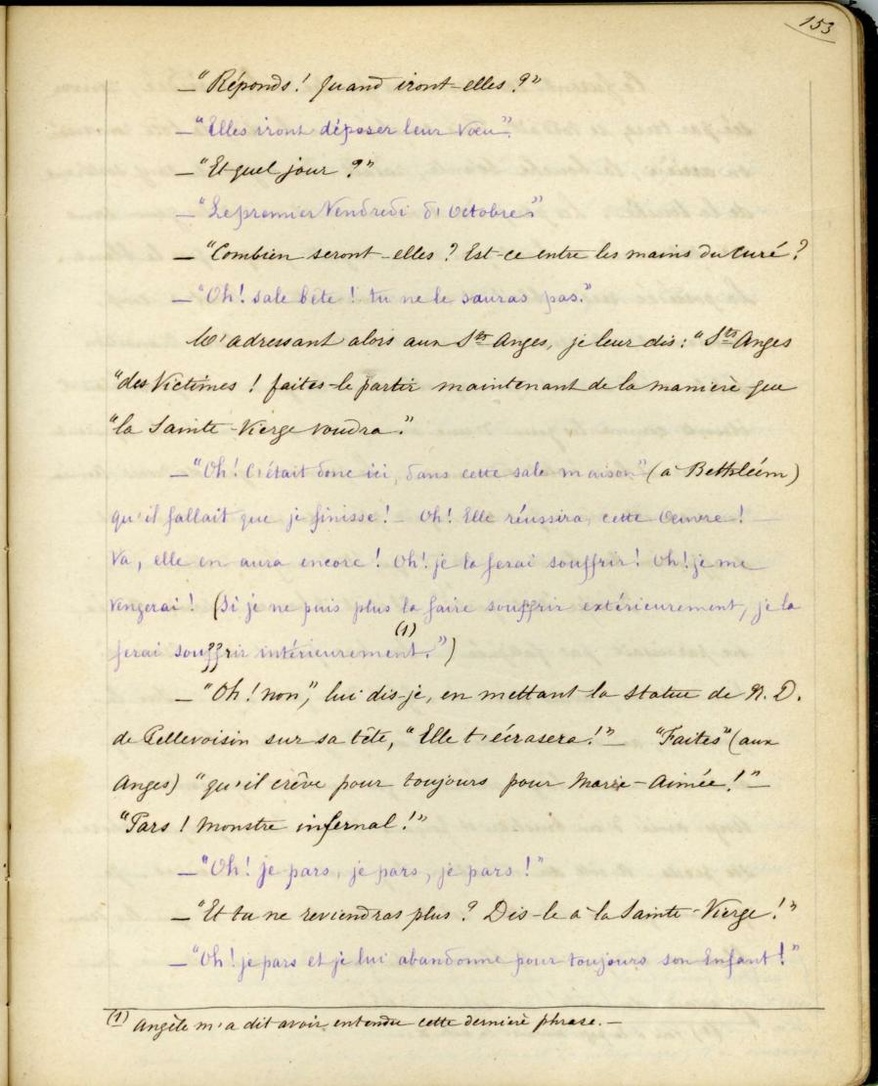 153
— "Réponds ! Quand iront-elles ?"
— "Elles iront déposer leur vœu".
— "Et quel jour ?"
— "Le premier Vendredi d'Octobre."
— "Combien seront-elles ? Est-ce entre les mains du Curé ?
— "Oh ! sale bête ! tu ne le sauras pas."
M'adressant alors aux Sts Anges, je leur dis : "Sts Anges
"des Victimes ! faites-le partir maintenant de la manière que
"la Sainte-Vierge voudra."
— "Oh ! C'était donc ici, dans cette sale maison" (à Bethléem)
qu'il fallait que je finisse ! — Oh ! Elle réussira, cette Oeuvre ! —
Va, elle en aura encore ! Oh ! je la ferai souffrir ! Oh ! je me
vengerai ! (Si je ne puis plus la faire souffrir extérieurement, je la
ferai souffrir intérieurement. (1)")
— "Oh ! non," lui dis-je, en mettant la statue de N. D.
de Pellevoisin sur sa tête, "Elle t'écrasera !" — "Faites" (aux
Anges) "qu'il crêve pour toujours pour Marie-Aimée !" —
"Pars ! Monstre infernal !"
— "Oh ! je pars, je pars, je pars !"
— "Et tu ne reviendras plus ? Dis-le à la Sainte-Vierge !"
— "Oh ! je pars et je lui abandonne pour toujours son Enfant !"
(1) Angèle m'a dit avoir entendu cette dernière phrase. —